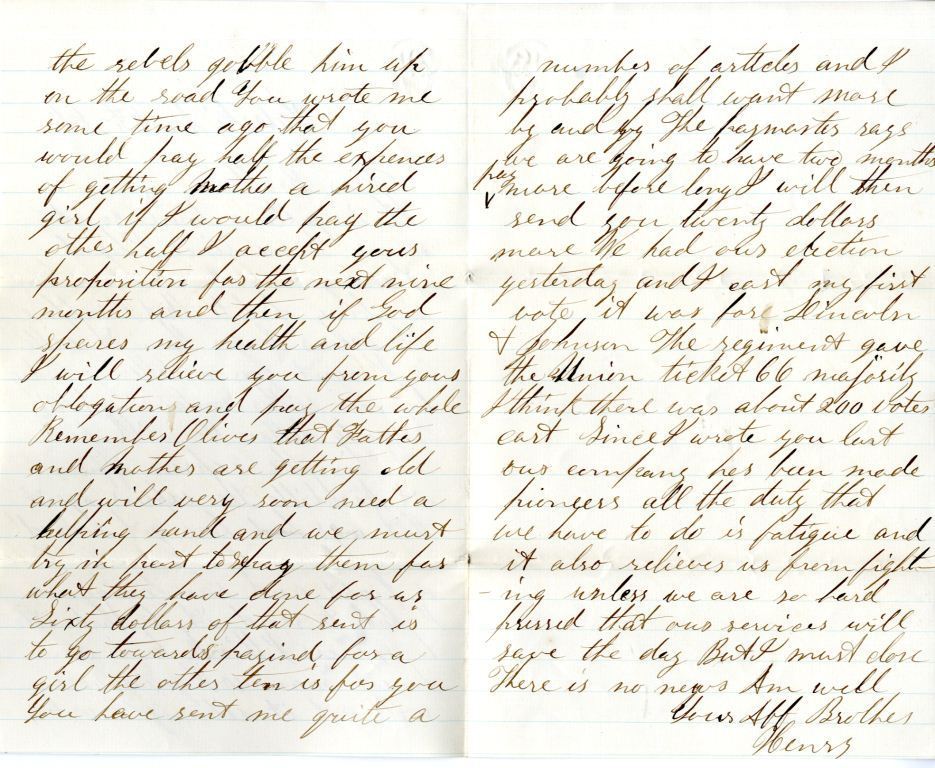 the rebels gobble him up
on the road You wrote me
some time ago that you
would pay half the expences
of getting Mother a hired
girl if I would pay the
other half I accept your
proposition for the next nine
months and then if God
spares my health and life
I will relieve you from your
oblogations and pay the whole
Remember Oliver that Father
and Mother are getting old
and will very soon need a
helping hand and we must
try in part to repay them for
what they have done for us
Sixty dollars of that sent is
to go towards paying for a
girl the other ten is for you
You have sent me quite a
number of articles and I
probably shall want more
by and by The paymaster says
we are going to have two months
pay
more before long I will then
send you twenty dollars
more We had our election
yesterday and I cast my first
vote it was fore Lincoln
& Johnson The regiment gave
the Union ticket 66 majority
I think there was about 200 votes
cast Since I wrote you last
our company has been made
pioneers all the duty that
we have to do is fatigue and
it also relieves us from fight-
-ing unless we are so hard
pressed that our services will
save the day But I must close
There is no news Am well
Your Aff Brother
Henry